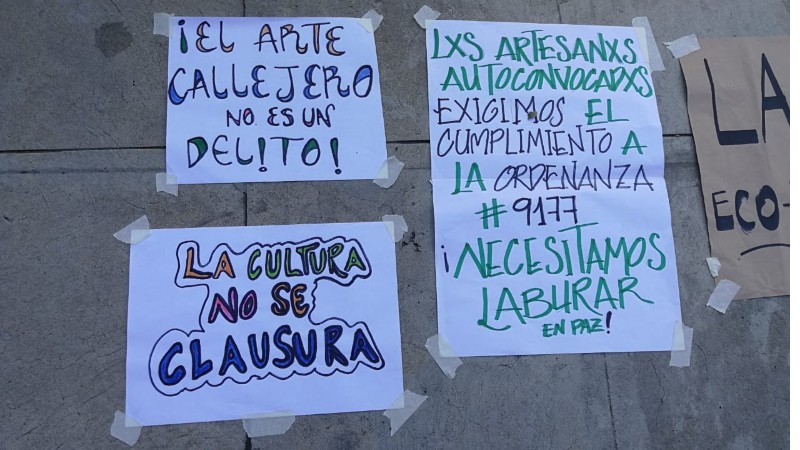 ¡EL ARTE
CALLEJERO
NO ES UN
DEL!TO!
LXS ARTESANXS
AUTOCONVOCADXS
EXIGIMOS EL
CUMPLIMIENTO A
LA ORDENANZA
# 9177
¡NECESITAMOS
LABURAR
EN PAZ!
LA CULTURA
NO SE
CLAUSURA
LA
ECO-